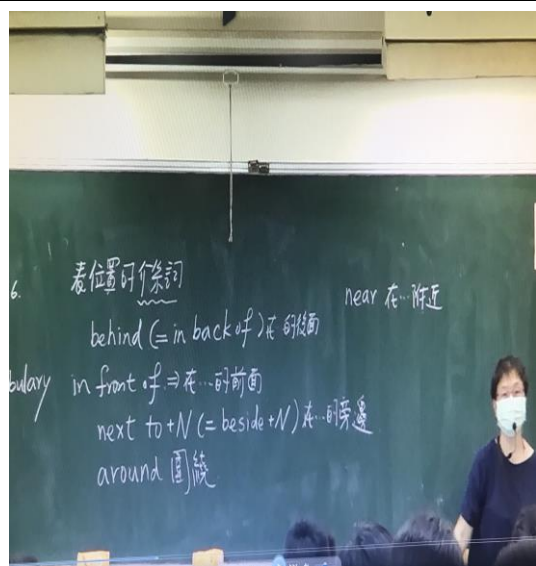 6. 表位置的介系詞
near 在…附近
behind (= in back of) 在 的後面
bulary in front of ⇒ 在…的前面
next to +N (= beside +N) 在…的旁邊
around 圍繞